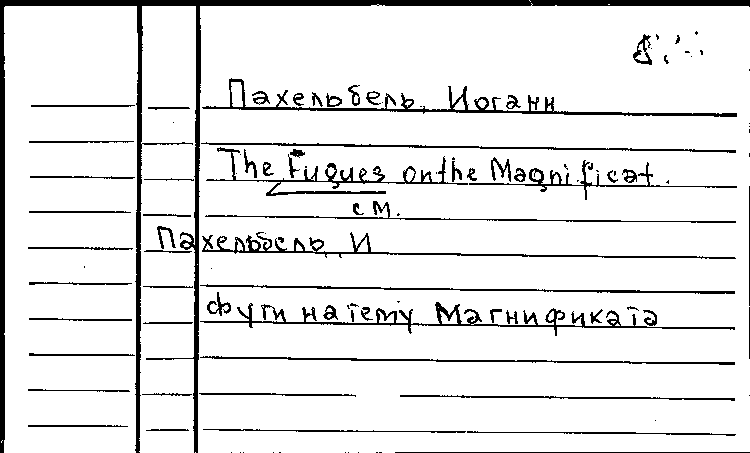 Пахельбель, Иоганн
The Fugues on the Magnificat.
см.
Пахельбель, И
Фуги на тему Магнификата